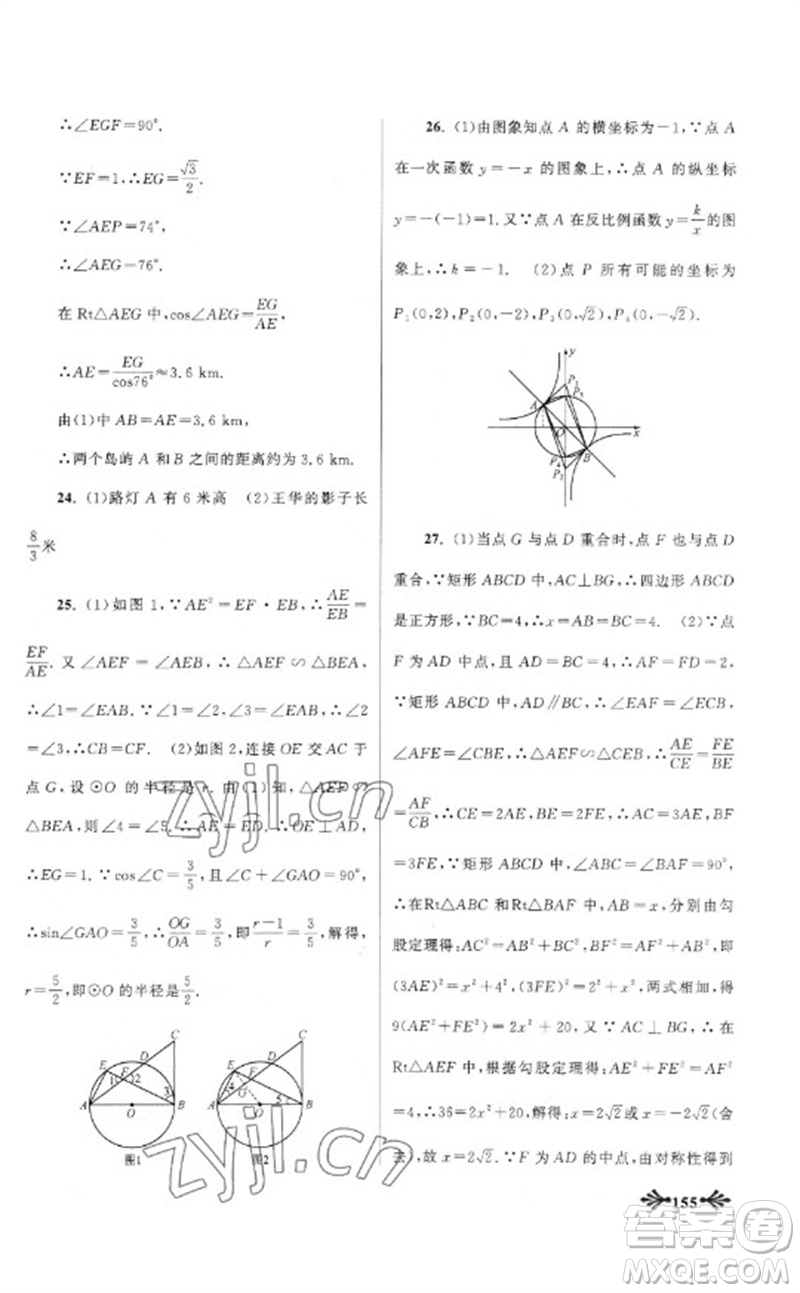 ∴∠EGF=90°.
∵EF=1,∴EG=√3/2.
∵∠AEP=74°,
∴∠AEG=76°.
在 Rt△AEG 中,cos∠AEG=EG/AE,
∴AE=EG/cos76°≈3.6 km.
由(1)中 AB=AE=3.6 km.
∴两个岛屿 A 和 B 之间的距离约为 3.6 km.
24. (1)路灯 A 有 6 米高 (2)王华的影子长
8/3米
25. (1)如图 1,∵AE²=EF・EB,∴AE/EB=
EF/AE. 又∠AEF=∠AEB,∴△AEF∽△BEA,
∴∠1=∠EAB. ∵∠1=∠2,∠3=∠EAB,∴∠2=
∠3,∴CB=CF. (2)如图 2,连接 OE 交 AC 于
点 G,设⊙O 的半径是 r. 由(1)知,△AEF∽
△BEA,则∠4=∠5. ∴AE=ED. ∴OE⊥AD,
∴EG=1. ∵cos∠C=3/5,且∠C+∠GAO=90°,
∴sin∠GAO=3/5,∴OG/OA=3/5,即(r-1)/r=3/5,解得,
r=5/2,即⊙O 的半径是5/2.
C
E
F
D
1
2
3
A
O
B
图1
C
E
F
D
4
G
5
A
O
B
图2
26. (1)由图象知点 A 的横坐标为-1,∵点 A
在一次函数 y=-x 的图象上,∴点 A 的纵坐标
y=-(-1)=1. 又∵点 A 在反比例函数 y=k/x的图
象上,∴k=-1. (2)点 P 所有可能的坐标为
P₁(0,2),P₂(0,-2),P₃(0,√2),P₄(0,-√2).
y
P₁
P₃
A
O
x
B
P₄
P₂
27. (1)当点 G 与点 D 重合时,点 F 也与点 D
重合,∵矩形 ABCD 中,AC⊥BG,∴四边形 ABCD
是正方形,∵BC=4,∴x=AB=BC=4. (2)∵点
F 为 AD 中点,且 AD=BC=4,∴AF=FD=2,
∵矩形 ABCD 中,AD∥BC,∴∠EAF=∠ECB,
∠AFE=∠CBE,∴△AEF∽△CEB,∴AE/CE=FE/BE
=AF/CB,∴CE=2AE,BE=2FE,∴AC=3AE,BF
=3FE,∵矩形 ABCD 中,∠ABC=∠BAF=90°,
∴在Rt△ABC 和Rt△BAF 中,AB=x,分别由勾
股定理得:AC²=AB²+BC²,BF²=AF²+AB²,即
(3AE)²=x²+4²,(3FE)²=2²+x²,两式相加,得
9(AE²+FE²)=2x²+20,又∵AC⊥BG,∴在
Rt△AEF 中,根据勾股定理得:AE²+FE²=AF²
=4,∴36=2x²+20,解得:x=2√2或 x=-2√2(舍
去),故 x=2√2. ∵F 为 AD 的中点,由对称性得到
155
zyjl.cn
zyjl.cn
答案圈
MXQE.COM